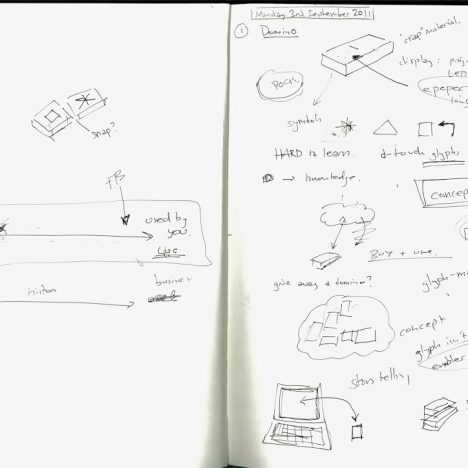 snap?
used by
you.
Live
business
Monday 3rd September 2011
1 Domino
"crap" material.
display:
Pocis
epeper
symbols
HARD to learn.
d-touch glyphs
→ knowledge.
concept
BUY + use.
give away a domino?
concept
glyph isn't
enabler
story telling